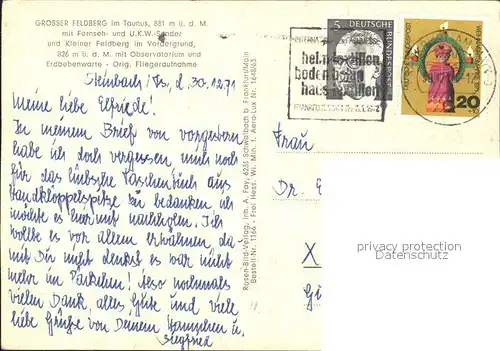 GROSSER FELDBERG im Taunus, 881 m ü. d. M.
mit Fernseh- und U.K.W.-Sender
und Kleiner Feldberg im Vordergrund,
826 m ü. d. M. mit Observatorium und
Erdbebenwarte - Orig. Fliegeraufnahme
Steinbach/Ts, d. 30.12.71
Meine liebe Elfriede!
In meinem Brief von vorgestern
habe ich doch vergessen mich noch
für das hübsche Taschentuch aus
Handklöppelspitze zu bedanken ich
möchte es hiermit nachholen. Ich
wollte es vor allem erwähnen, da-
mit Du nicht denkst es war nicht
mehr im Päckchen! Also nochmals
vielen Dank, alles Gute und viele
liebe Grüsse von Deinem Hannchen u.
Siegfried
Rosen-Bild-Verlag, Inh. A. Fay, 6231 Schwalbach B. Frankfurt/Main
Bestell-Nr. 1166 - Frei Hess. Wi. Min. f. Aero-Lux Nr. 1648/65
5
DEUTSCHE BUNDESPOST
heimtextilien
bodenbelag
haustextilien
FRANKFURT
20
Frau
Dr. E
X
privacy protection
watermark